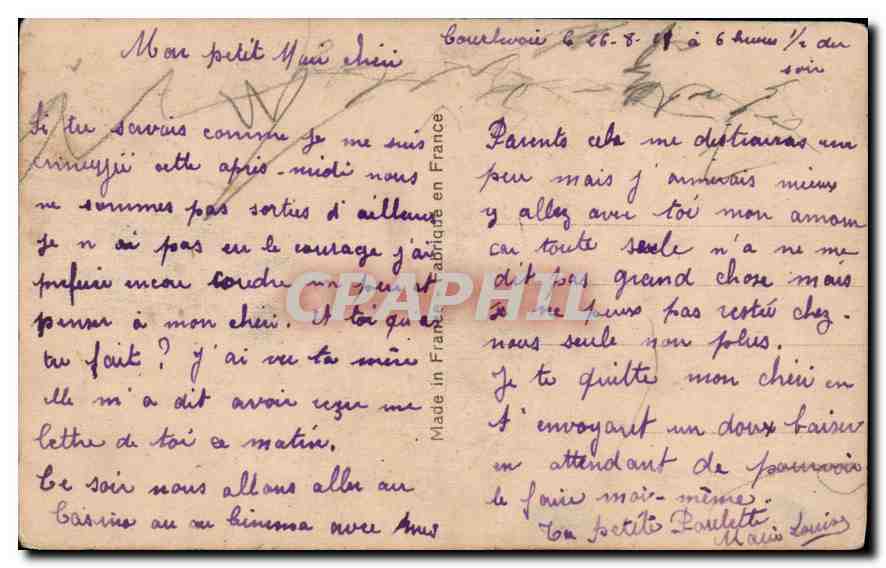 Courbevoie le 26-8- à 6 heures 1/2 du
soir
Mon petit chéri
Si tu savais comme je me suis
ennuyée cette après-midi nous
ne sommes pas sorties d'ailleurs
je n ai pas eu le courage j'ai
préféré encore coudre un peu et
penser à mon chéri. Et toi qu'as
tu fait? J'ai vu ta mère
elle m'a dit avoir reçu une
lettre de toi ce matin.
Ce soir nous allons aller au
Casino ou au Cinema avec mes
Made in France Fabriqué en France
CPAPHIL
Parents cela me distraira un
peu mais j'aimerais mieux
y allez avec toi mon amour
car toute seule n'a ne me
dit pas grand chose mais
je ne peux pas resté chez
nous seule non plus.
Je te quitte mon chéri en
t'envoyant un doux baiser
en attendant de pouvoir
le faire moi-même.
Ta petite Paulette
Marie Louise